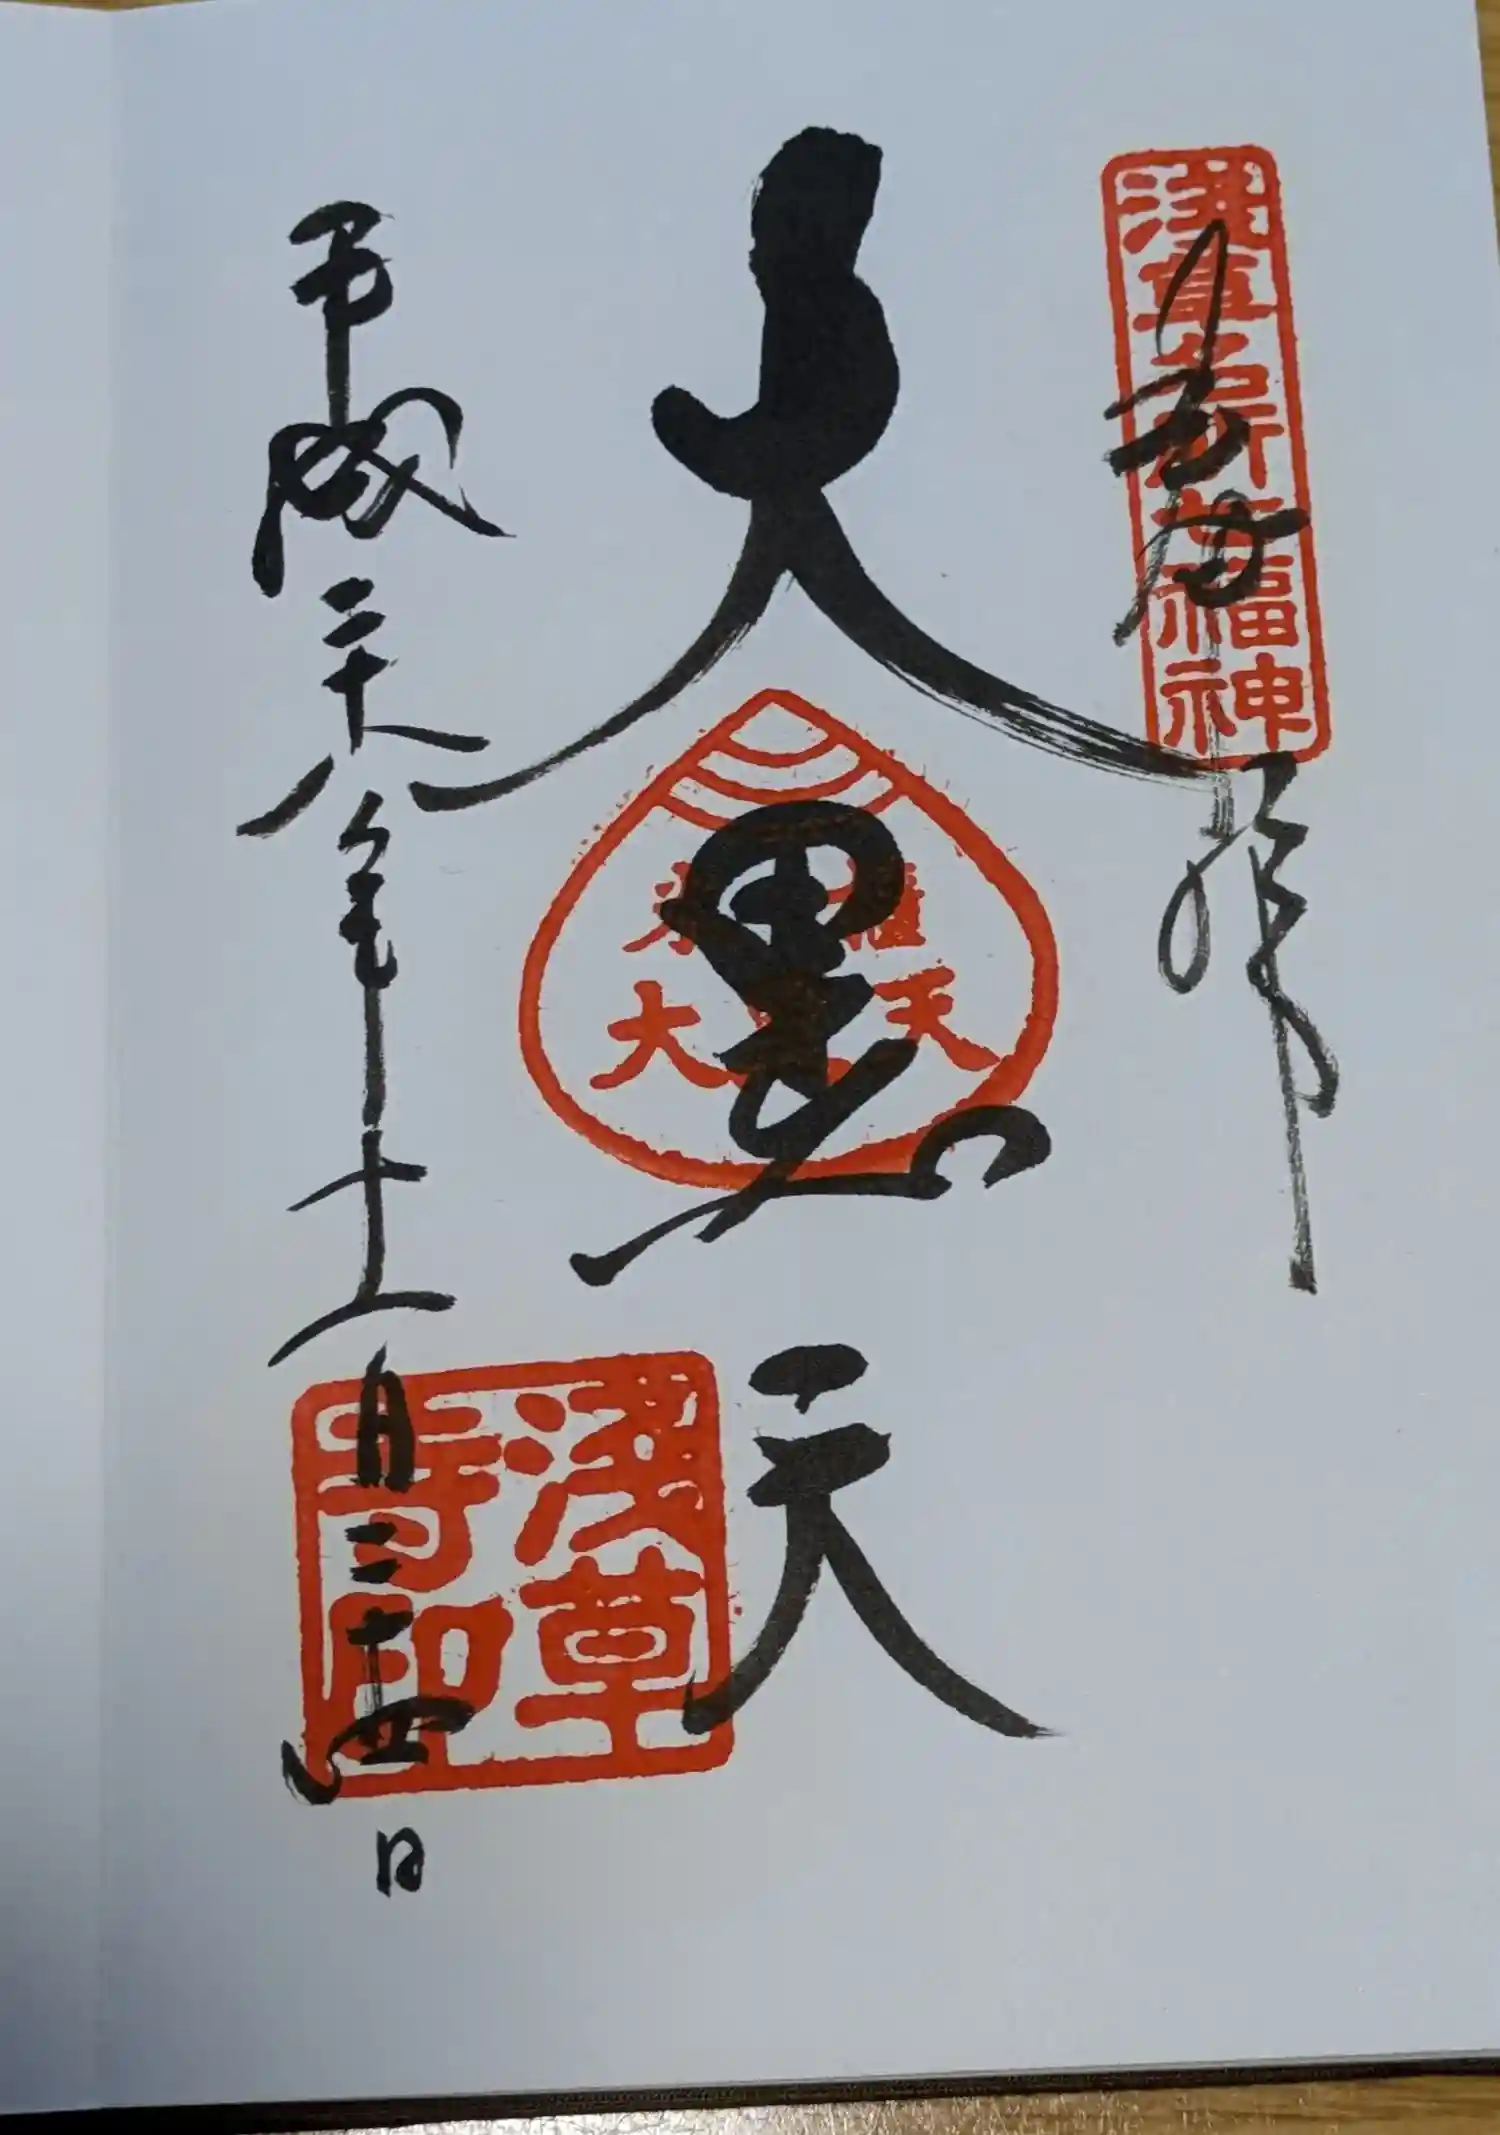 浅草名所七福神
奉拝
大黒天
米櫃
大黒天
平成二十八年十一月二十四日
淺草寺印